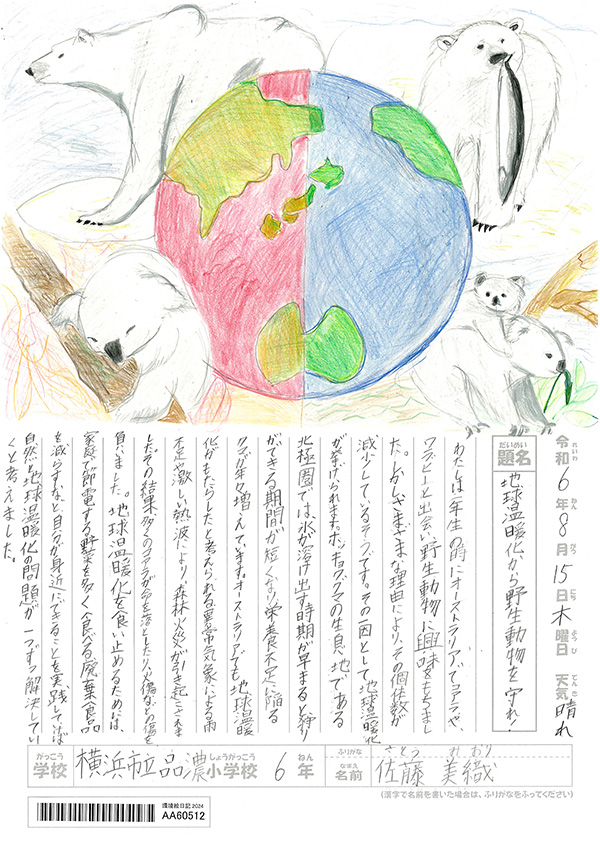 令和6年8月15日木曜日 天気 晴れ
れいわ ねん がつ にち よう び てんき
だいめい
題名
地球温暖化から野生動物を守れ!
わたしは一年生の時にオーストラリアでコアラや、
ワラビーと出会い、野生動物に興味をもちまし
た。しかし、さまざまな理由により、その個体数が
減少しているそうです。その一因として地球温暖化
が挙げられます。ホッキョクグマの生息地である
北極圏では、氷が溶け出す時期が早まると狩り
ができる期間が短くなり、栄養不足に陥る
クマが年々増えています。オーストラリアでも地球温暖
化がもたらしたと考えられる異常気象による雨
不足や激しい熱波により、森林火災が引き起こされま
した。その結果、多くのコアラが命を落としたり、火傷などの傷を
負いました。地球温暖化を食い止めるためには、
家庭で節電する、野菜を多く食べる、廃棄食品
を減らすなど、自分が身近にできることを実践していけば
自然と地球温暖化の問題が一つずつ解決してい
くと考えました。
がっこう
学校
横浜市立品濃小学校 6年
しょうがっこう ねん
ふりがな さとう みおり
なまえ
名前 佐藤 美織
(漢字で名前を書いた場合は、ふりがなをふってください)
環境絵日記2024
AA60512